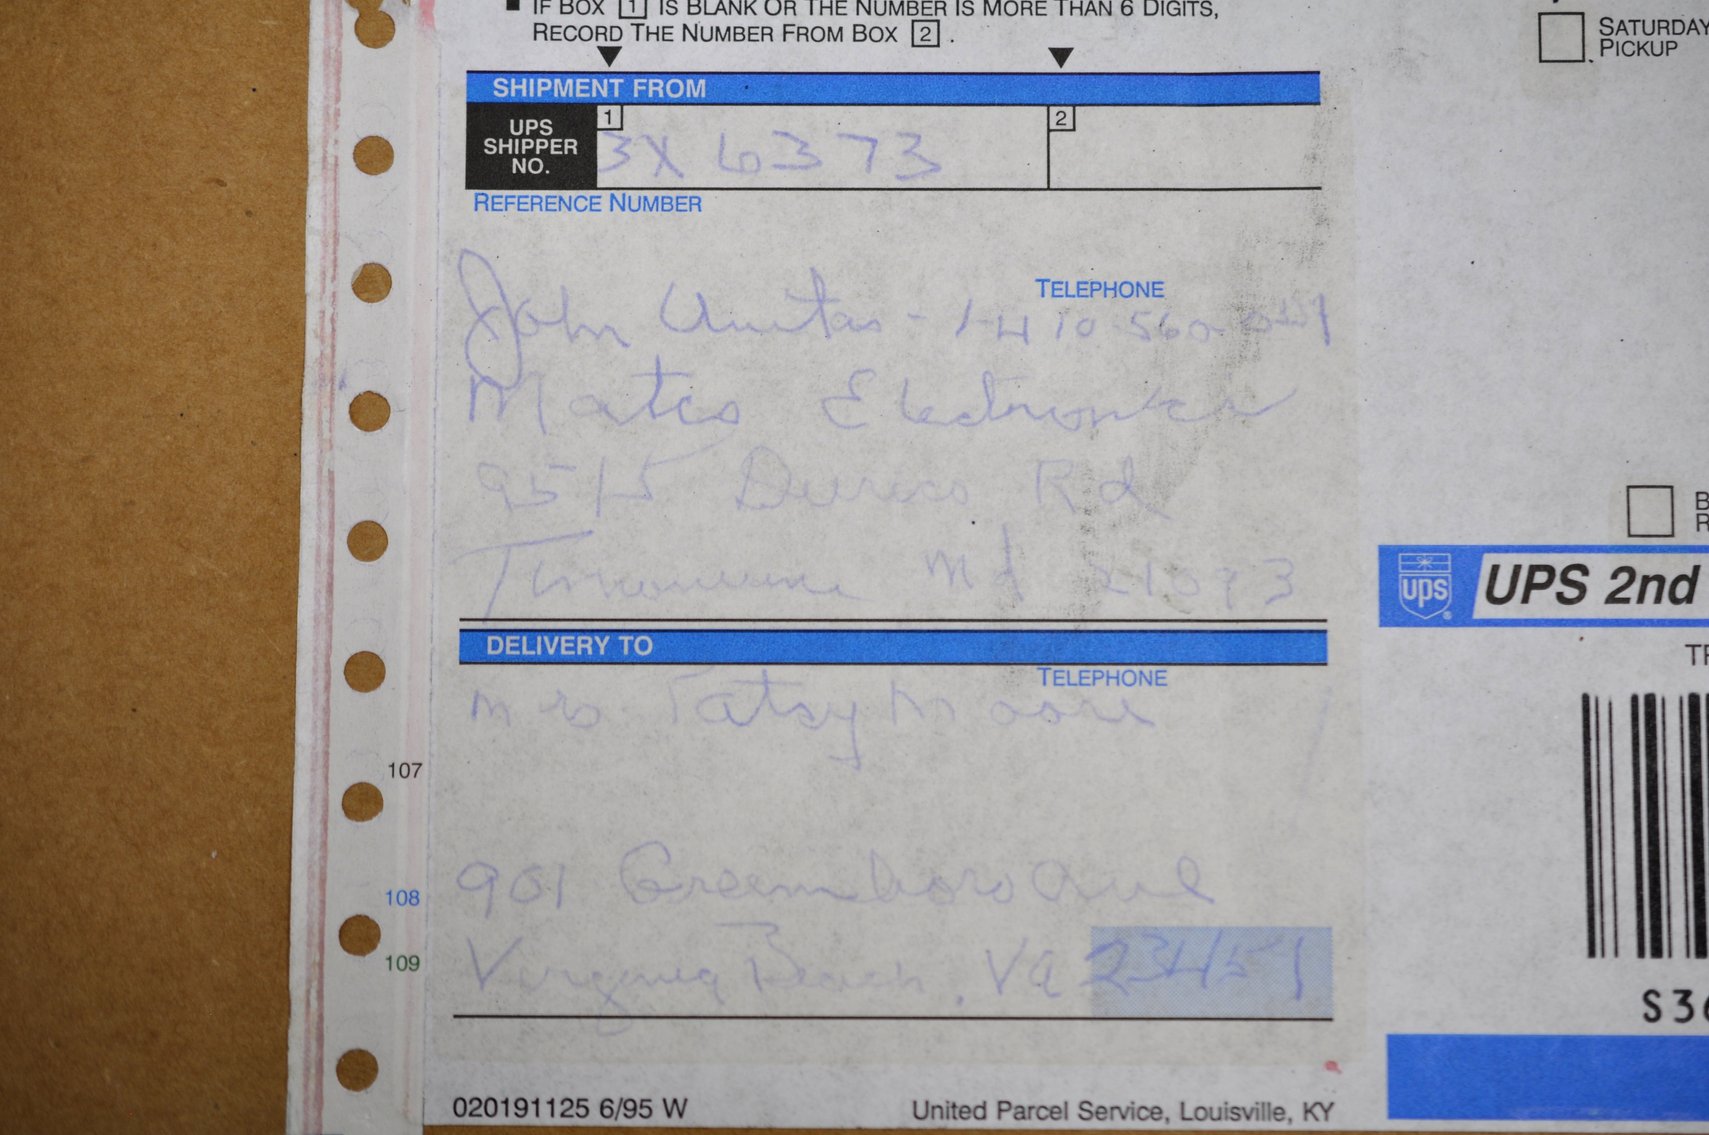 IF BOX 1 IS BLANK OR THE NUMBER IS MORE THAN 6 DIGITS,
RECORD THE NUMBER FROM BOX 2.
SATURDAY
PICKUP
SHIPMENT FROM
UPS
SHIPPER
NO.
1
3X 6373
2
REFERENCE NUMBER
TELEPHONE
John Unitas - 1-410-560-
Matco Electronics
9515 Rd
Md 21093
DELIVERY TO
TELEPHONE
Mrs. Patsy Moore
901 Greensboro Ave
Virginia Beach, VA 23451
107
108
109
020191125 6/95 W
United Parcel Service, Louisville, KY
B
R
ups
UPS 2nd
TR
S36